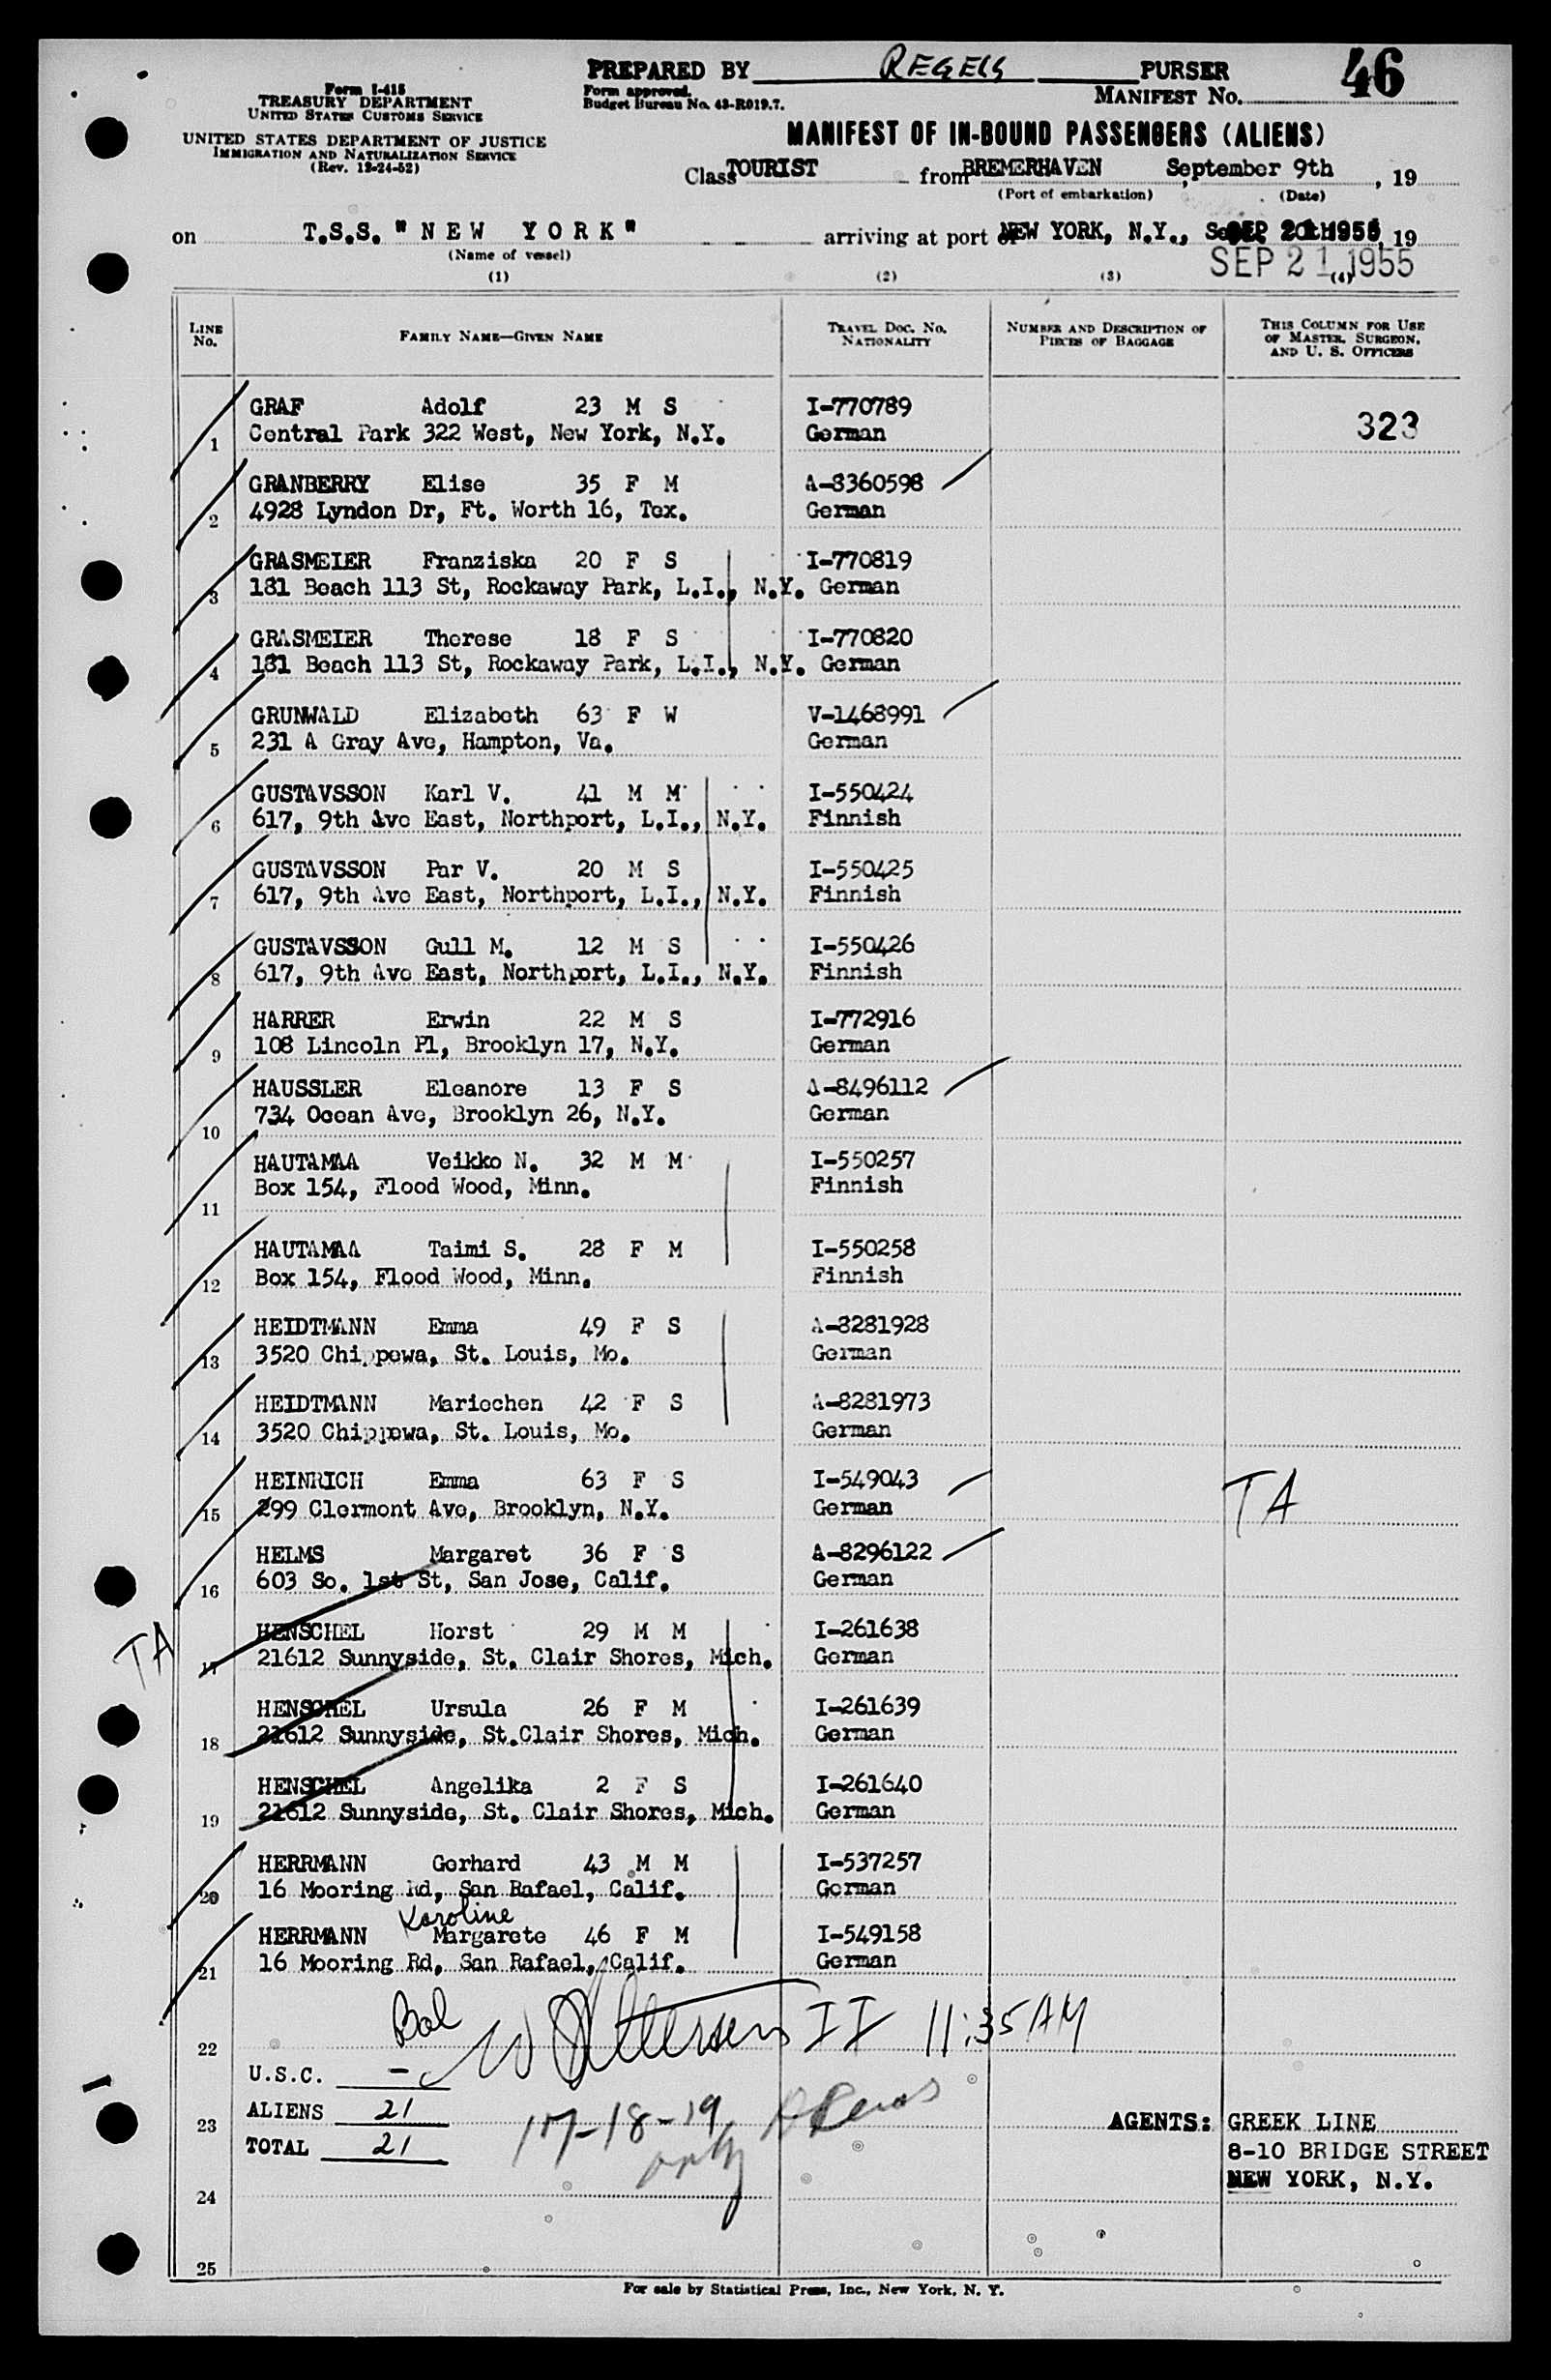 PREPARED BY REGEIS PURSER 46
Form I-415
TREASURY DEPARTMENT
UNITED STATES CUSTOMS SERVICE
Form approved.
Budget Bureau No. 43-R019.7.
MANIFEST No.
UNITED STATES DEPARTMENT OF JUSTICE
IMMIGRATION AND NATURALIZATION SERVICE
(Rev. 12-24-52)
MANIFEST OF IN-BOUND PASSENGERS (ALIENS)
Class TOURIST from BREMERHAVEN September 9th, 19
(Port of embarkation) (Date)
on T.S.S. "NEW YORK" arriving at port of NEW YORK, N.Y., 1955, 19
(Name of vessel)
SEP 21 1955
(1) (2) (3) (4)
LINE No. FAMILY NAME—GIVEN NAME TRAVEL DOC. No. NATIONALITY NUMBER AND DESCRIPTION OF PIECES OF BAGGAGE THIS COLUMN FOR USE OF MASTER, SURGEON, AND U. S. OFFICERS
GRAF Adolf 23 M S I-770789
1 Central Park 322 West, New York, N.Y. German 323
GRANBERRY Elise 35 F M A-8360598
2 4928 Lyndon Dr, Ft. Worth 16, Tex. German
GRASMEIER Franziska 20 F S I-770819
3 181 Beach 113 St, Rockaway Park, L.I., N.Y. German
GRASMEIER Therese 18 F S I-770820
4 181 Beach 113 St, Rockaway Park, L.I., N.Y. German
GRUNWALD Elizabeth 63 F W V-1468991
5 231 A Gray Ave, Hampton, Va. German
GUSTAVSSON Karl V. 41 M M I-550424
6 617, 9th Ave East, Northport, L.I., N.Y. Finnish
GUSTAVSSON Par V. 20 M S I-550425
7 617, 9th Ave East, Northport, L.I., N.Y. Finnish
GUSTAVSSON Gull M. 12 M S I-550426
8 617, 9th Ave East, Northport, L.I., N.Y. Finnish
HARRER Erwin 22 M S I-772916
9 108 Lincoln Pl, Brooklyn 17, N.Y. German
HAUSSLER Eleanore 13 F S A-8496112
734 Ocean Ave, Brooklyn 26, N.Y. German
10
HAUTAMAA Veikko N. 32 M M I-550257
Box 154, Flood Wood, Minn. Finnish
11
HAUTAMAA Taimi S. 28 F M I-550258
12 Box 154, Flood Wood, Minn. Finnish
HEIDTMANN Emma 49 F S A-8281928
13 3520 Chippewa, St. Louis, Mo. German
HEIDTMANN Mariechen 42 F S A-8281973
14 3520 Chippewa, St. Louis, Mo. German
HEINRICH Emma 63 F S I-549043
15 299 Clermont Ave, Brooklyn, N.Y. German TA
HELMS Margaret 36 F S A-8296122
16 603 So. 1st St, San Jose, Calif. German
HENSCHEL Horst 29 M M I-261638
TA 17 21612 Sunnyside, St. Clair Shores, Mich. German
HENSCHEL Ursula 26 F M I-261639
18 21612 Sunnyside, St.Clair Shores, Mich. German
HENSCHEL Angelika 2 F S I-261640
19 21612 Sunnyside, St. Clair Shores, Mich. German
HERRMANN Gerhard 43 M M I-537257
20 16 Mooring Rd, San Rafael, Calif. German
Karoline
HERRMANN Margarete 46 F M I-549158
21 16 Mooring Rd, San Rafael, Calif. German
Bal II 11:35 AM
22
U.S.C. -
ALIENS 21 17-18-19
23 AGENTS: GREEK LINE
TOTAL 21 only
8-10 BRIDGE STREET
NEW YORK, N.Y.
24
25
For sale by Statistical Press, Inc., New York, N. Y.